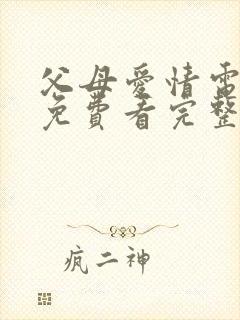 父母愛情電
免費看完整
瘋二神